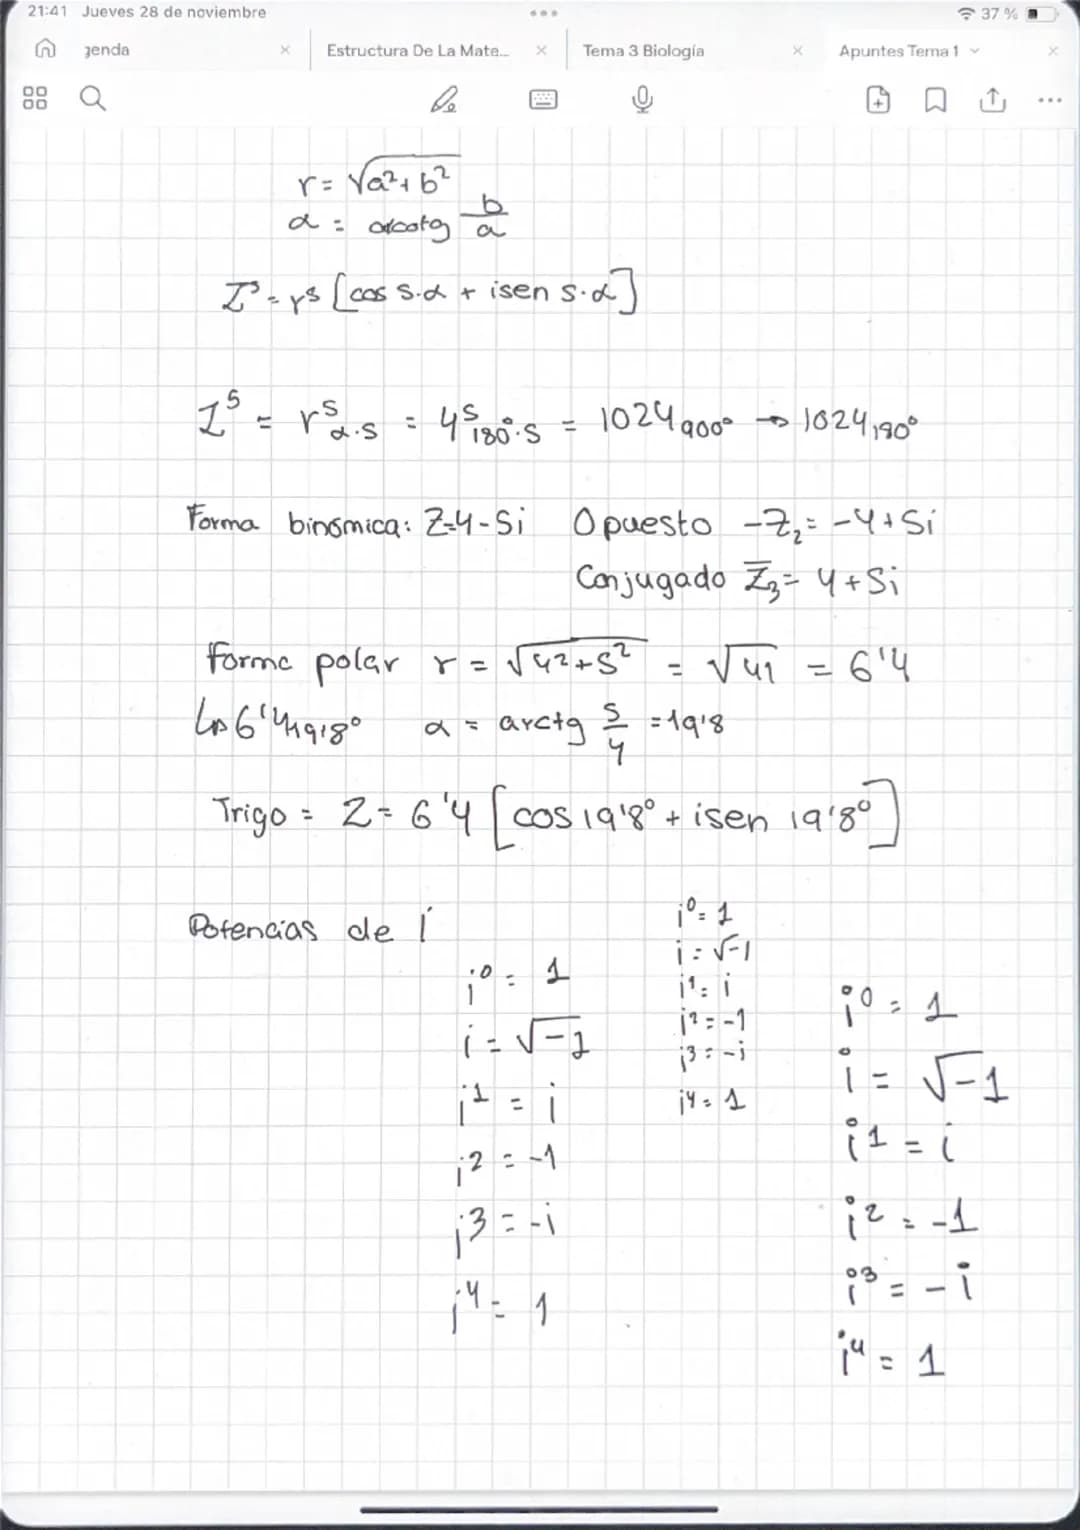 21:41 Jueves 28 de noviembre 37 %
genda
Estructura De La Mate...
Tema 3 Biología
Apuntes Tema 1
r = √a²+b²
α = arcotg b/a
Z⁵ = r⁵ [cos 5·α + isen 5·α]
Z⁵ = r⁵ α·5 = 4⁵ 180°·5 = 1024 900° → 1024 180°
Forma binómica: Z=4-5i Opuesto -Z₂ = -4+5i
Conjugado Z̅₃ = 4+5i
Forma polar r = √4²+5² = √41 = 6'4
↳ 6'4 19'8° α = arctg 5/4 = 19'8
Trigo = Z = 6'4 [cos 19'8° + isen 19'8°]
Potencias de i
i⁰ = 1
i = √-1
i¹ = i
i² = -1
i³ = -i
i⁴ = 1
i⁰ = 1
i = √-1
i¹ = i
i² = -1
i³ = -i
i⁴ = 1
i⁰ = 1
i = √-1
i¹ = i
i² = -1
i³ = -i
i⁴ = 1